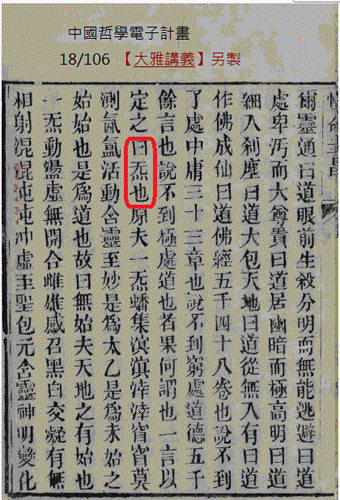 中國哲學電子計畫
18/106 【大雅講義】另製
爾靈通曰道眼前生殺分明而無能逃避曰道
處卑污而大尊貴曰道居幽暗而極高明曰道
細入刹塵曰道大包天地曰道從無入有曰道
作佛成仙曰道佛經五千四十八卷也說不到
了處中庸三十三章也說不到窮處道德五千
餘言也說不到極處道也者果何謂也一言以
定之曰炁也原夫一炁蟠集溟溟涬涬窅窅莫
測氤氳活動含靈至妙是爲太乙是爲未始之
始始也是爲道也故曰無始夫天地之有始也
一炁動盪虛無開合雌雄感召黑白交凝有無
相射混混沌沌冲虛至聖包元含靈神明變化